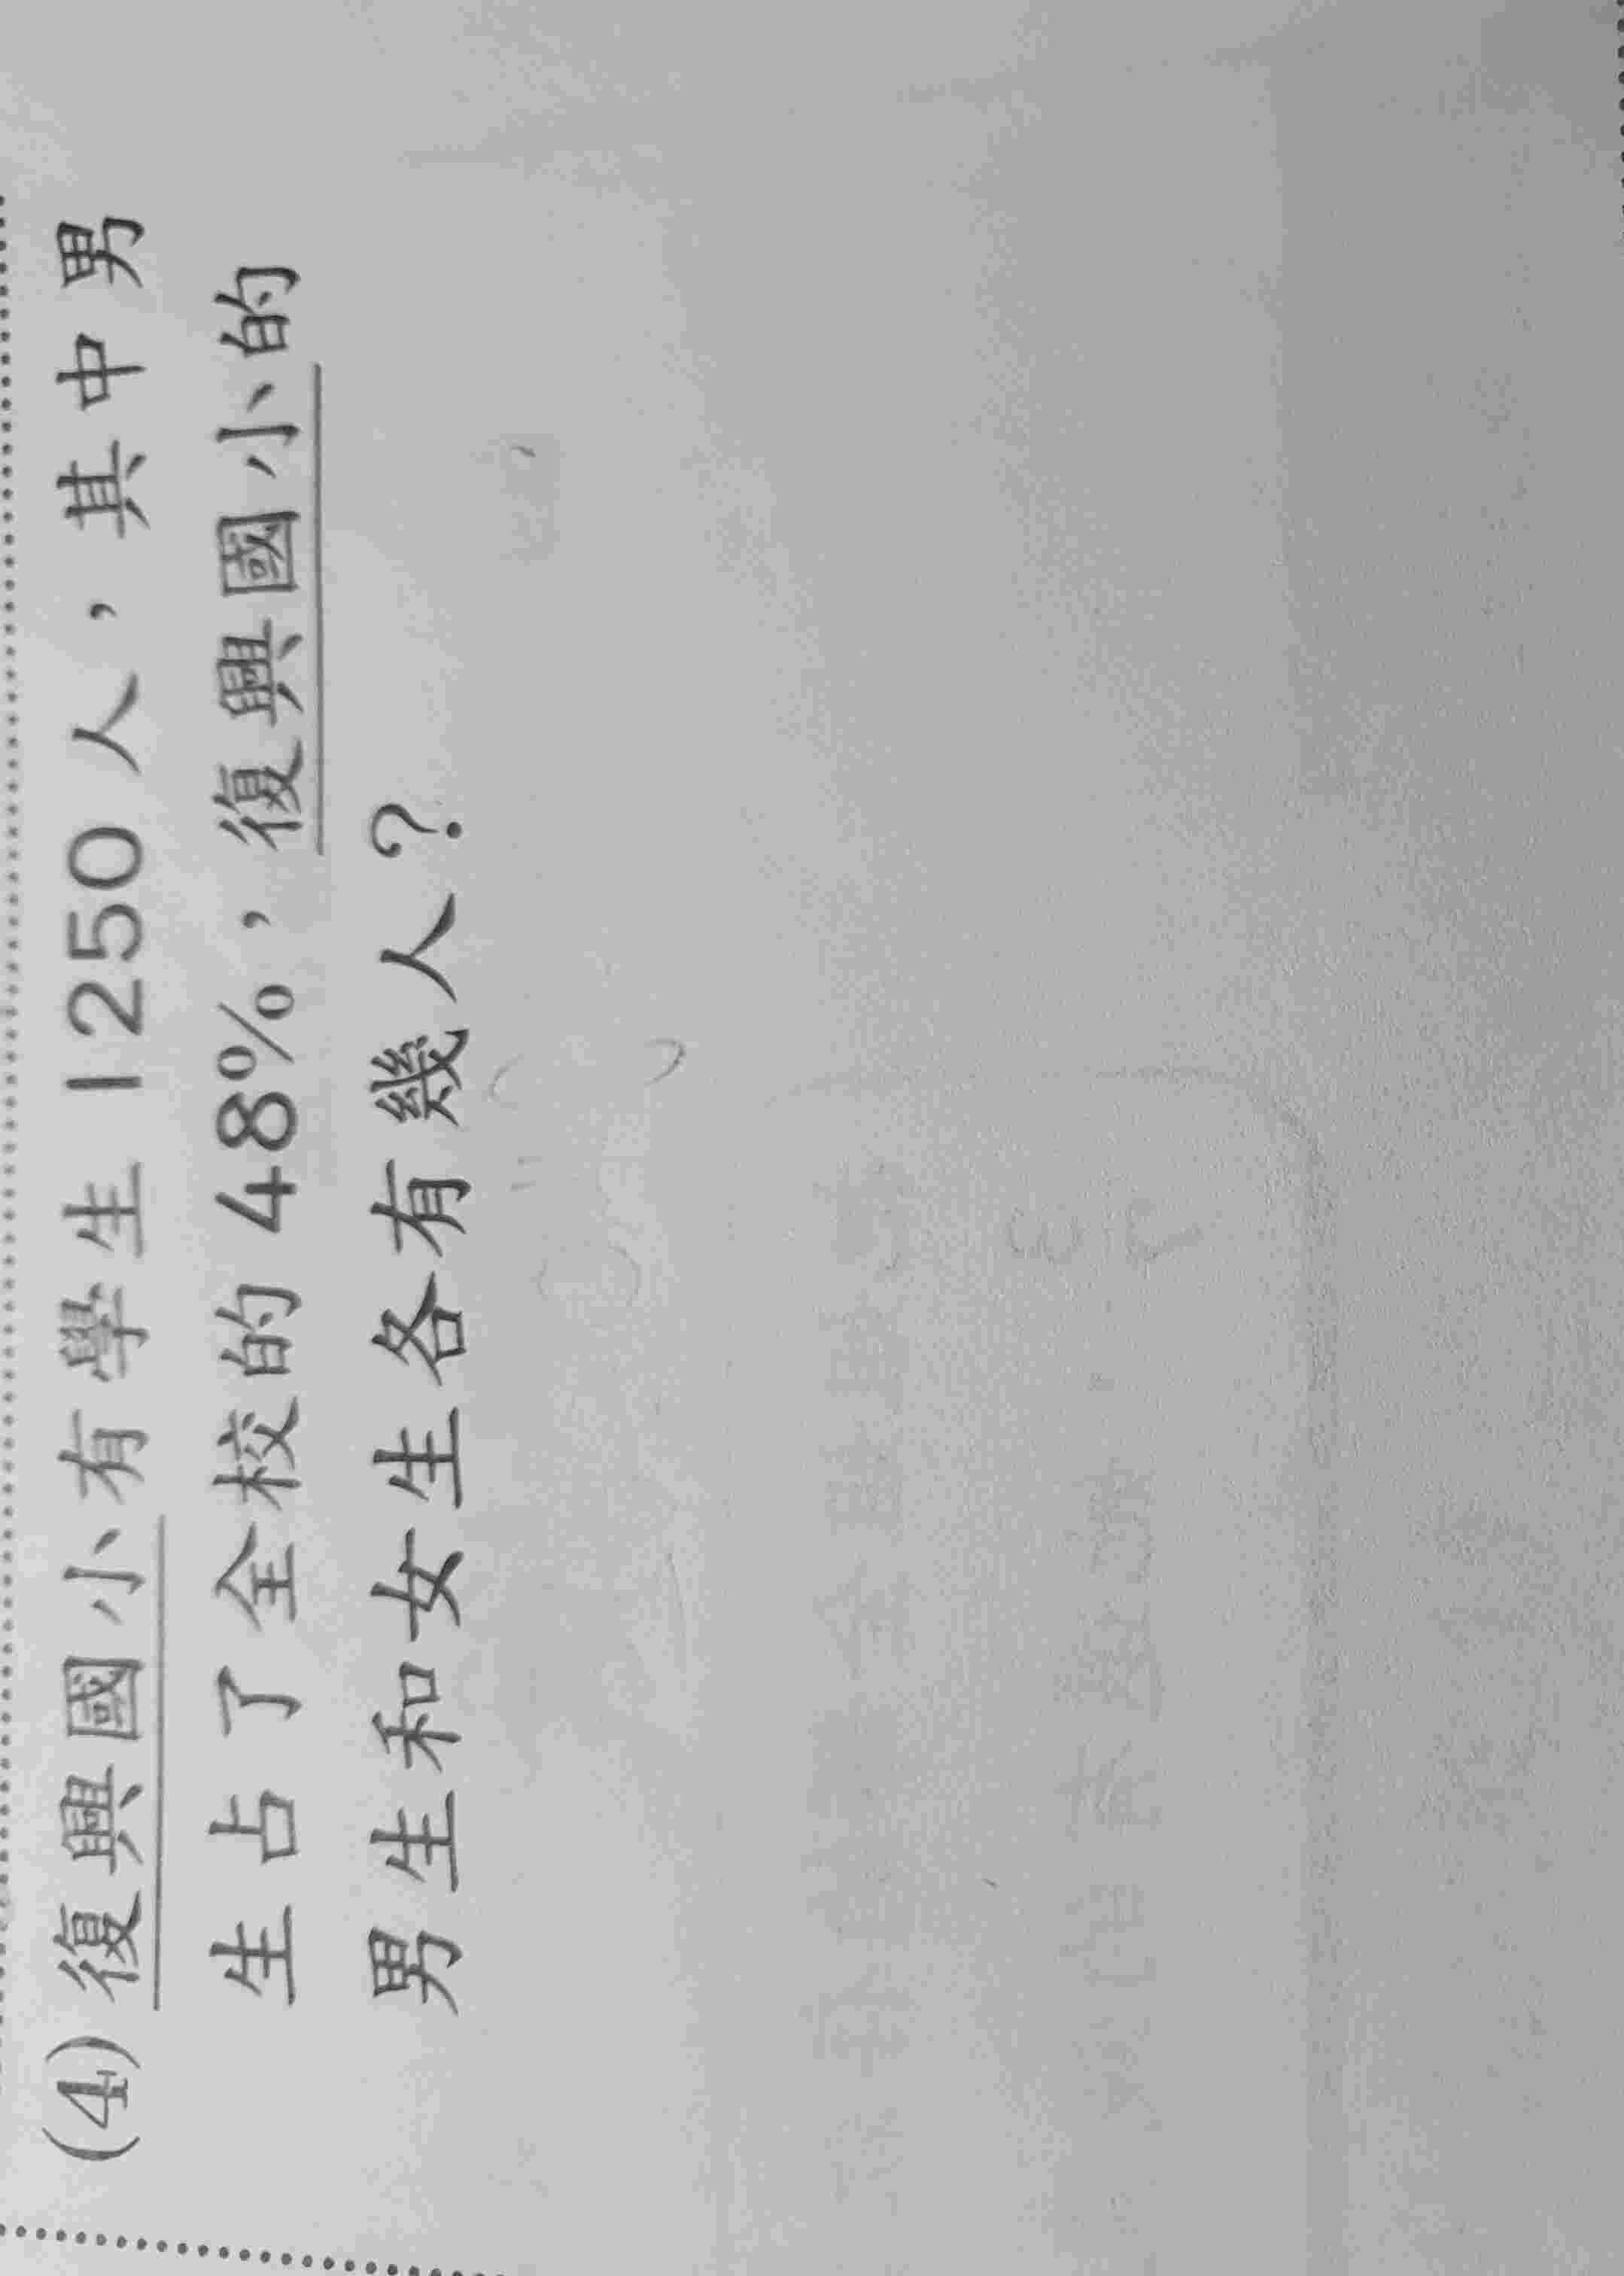 (4) 復興國小有學生 1250 人，其中男
生占了全校的 48%，復興國小的
男生和女生各有幾人？